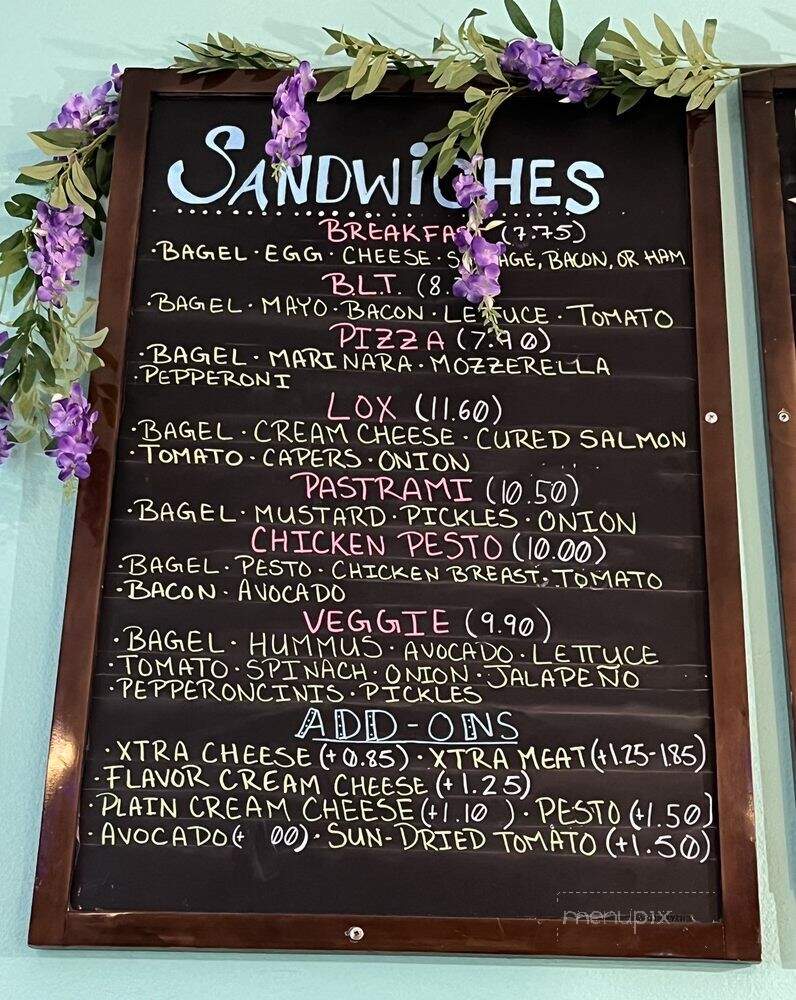 SANDWICHES
BREAKFAST (7.75)
·BAGEL·EGG·CHEESE·SAUSAGE, BACON, OR HAM
B.L.T. (8.
·BAGEL·MAYO·BACON·LETTUCE·TOMATO
PIZZA (7.90)
·BAGEL·MARINARA·MOZZERELLA
·PEPPERONI
LOX (11.60)
·BAGEL·CREAM CHEESE·CURED SALMON
·TOMATO·CAPERS·ONION
PASTRAMI (10.50)
·BAGEL·MUSTARD·PICKLES·ONION
CHICKEN PESTO (10.00)
·BAGEL·PESTO·CHICKEN BREAST·TOMATO
·BACON·AVOCADO
VEGGIE (9.90)
·BAGEL·HUMMUS·AVOCADO·LETTUCE
·TOMATO·SPINACH·ONION·JALAPEÑO
·PEPPERONCINIS·PICKLES
ADD-ONS
·XTRA CHEESE (+0.85)·XTRA MEAT (+1.25-1.85)
·FLAVOR CREAM CHEESE (+1.25)
·PLAIN CREAM CHEESE (+1.10 )·PESTO (+1.50)
·AVOCADO (+ 00)·SUN-DRIED TOMATO (+1.50)
menupix